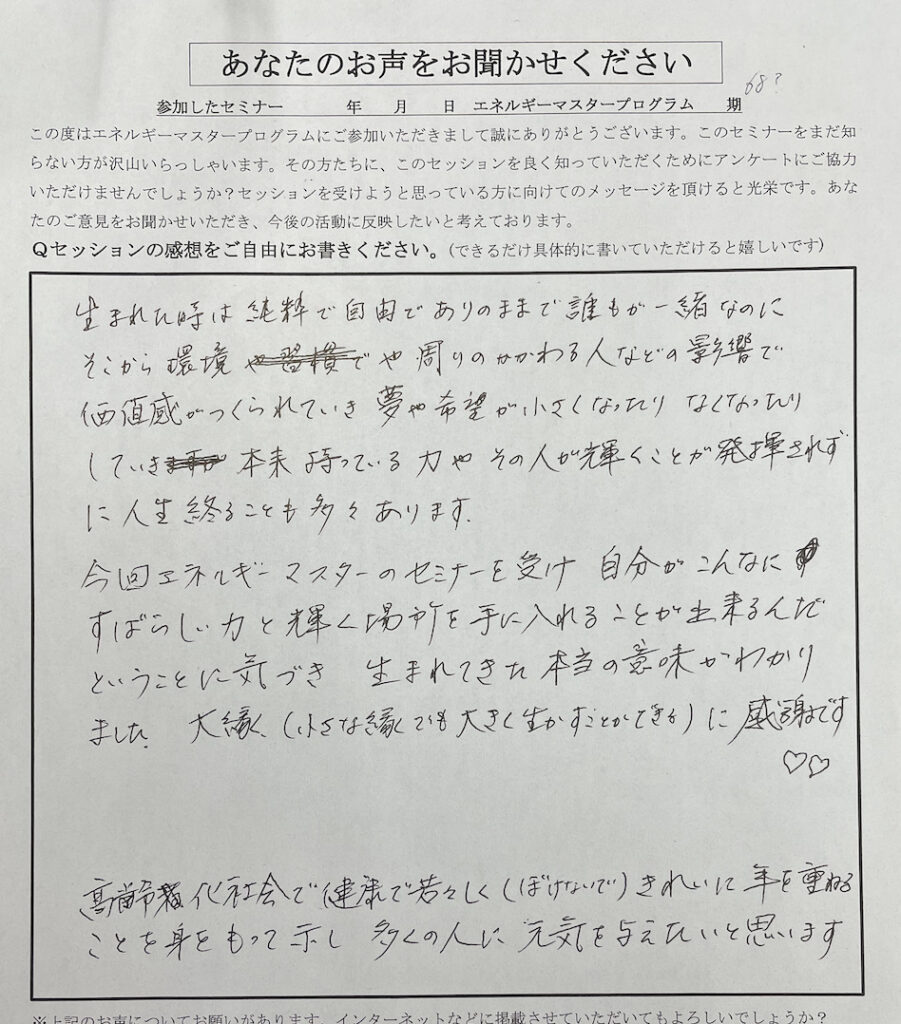 あなたのお声をお聞かせください
68?
参加したセミナー　　　年　　月　　日　エネルギーマスタープログラム　　期
この度はエネルギーマスタープログラムにご参加いただきまして誠にありがとうございます。このセミナーをまだ知
らない方が沢山いらっしゃいます。その方たちに、このセッションを良く知っていただくためにアンケートにご協力
いただけませんでしょうか？セッションを受けようと思っている方に向けてのメッセージを頂けると光栄です。あな
たのご意見をお聞かせいただき、今後の活動に反映したいと考えております。
Qセッションの感想をご自由にお書きください。(できるだけ具体的に書いていただけると嬉しいです)
生まれた時は純粋で自由でありのままで誰もが一緒なのに
そこから環境や習慣でや周りのかかわる人などの影響で
価値感がつくられていき 夢や希望が小さくなったり なくなったり
していき 本来持っている力や その人が輝くことが発揮されず
に人生終ることも多々あります。
今回エネルギーマスターのセミナーを受け 自分がこんなに
すばらしい力と輝く場所を手に入れることが出来るんだ
ということに気づき 生まれてきた本当の意味がわかり
ました。 大縁、(小さな縁でも大きく生かすことができる)に感謝です
♡♡
高齢者化社会で健康で若々しく(ぼけないで)きれいに年を重ねる
ことを身をもって示し 多くの人に元気を与えたいと思います
※上記のお声についてお願いがあります。インターネットなどに掲載させていただいてもよろしいでしょうか？